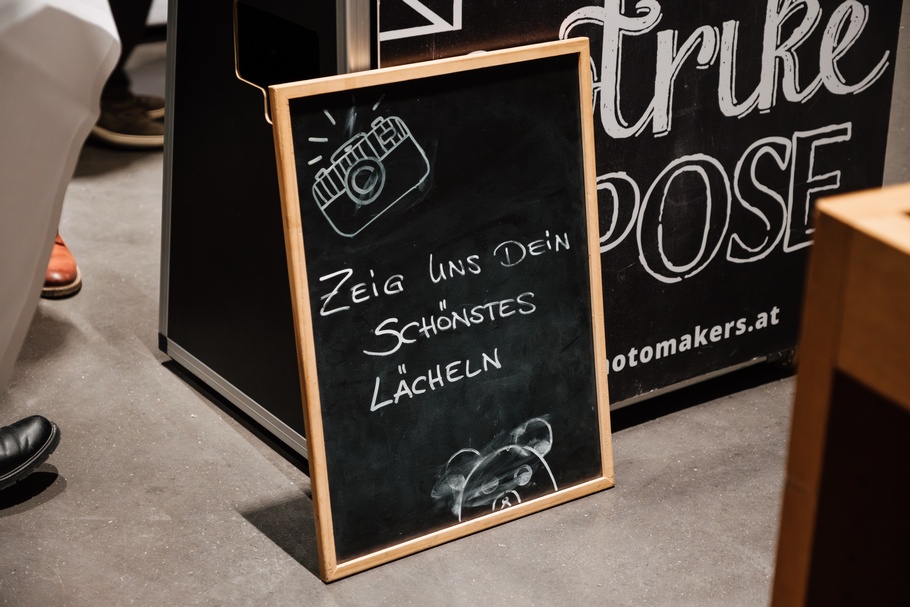 ZEIG UNS DEIN
SCHÖNSTES
LÄCHELN
Strike
POSE
otomakers.at